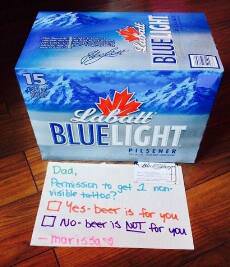 15
Labatt
BLUELIGHT
PILSENER
BLUELIGHT
Dad,
Permission to get 1 non-
visible tattoo?
Yes- beer is for you
No- beer is NOT for you
- marissa